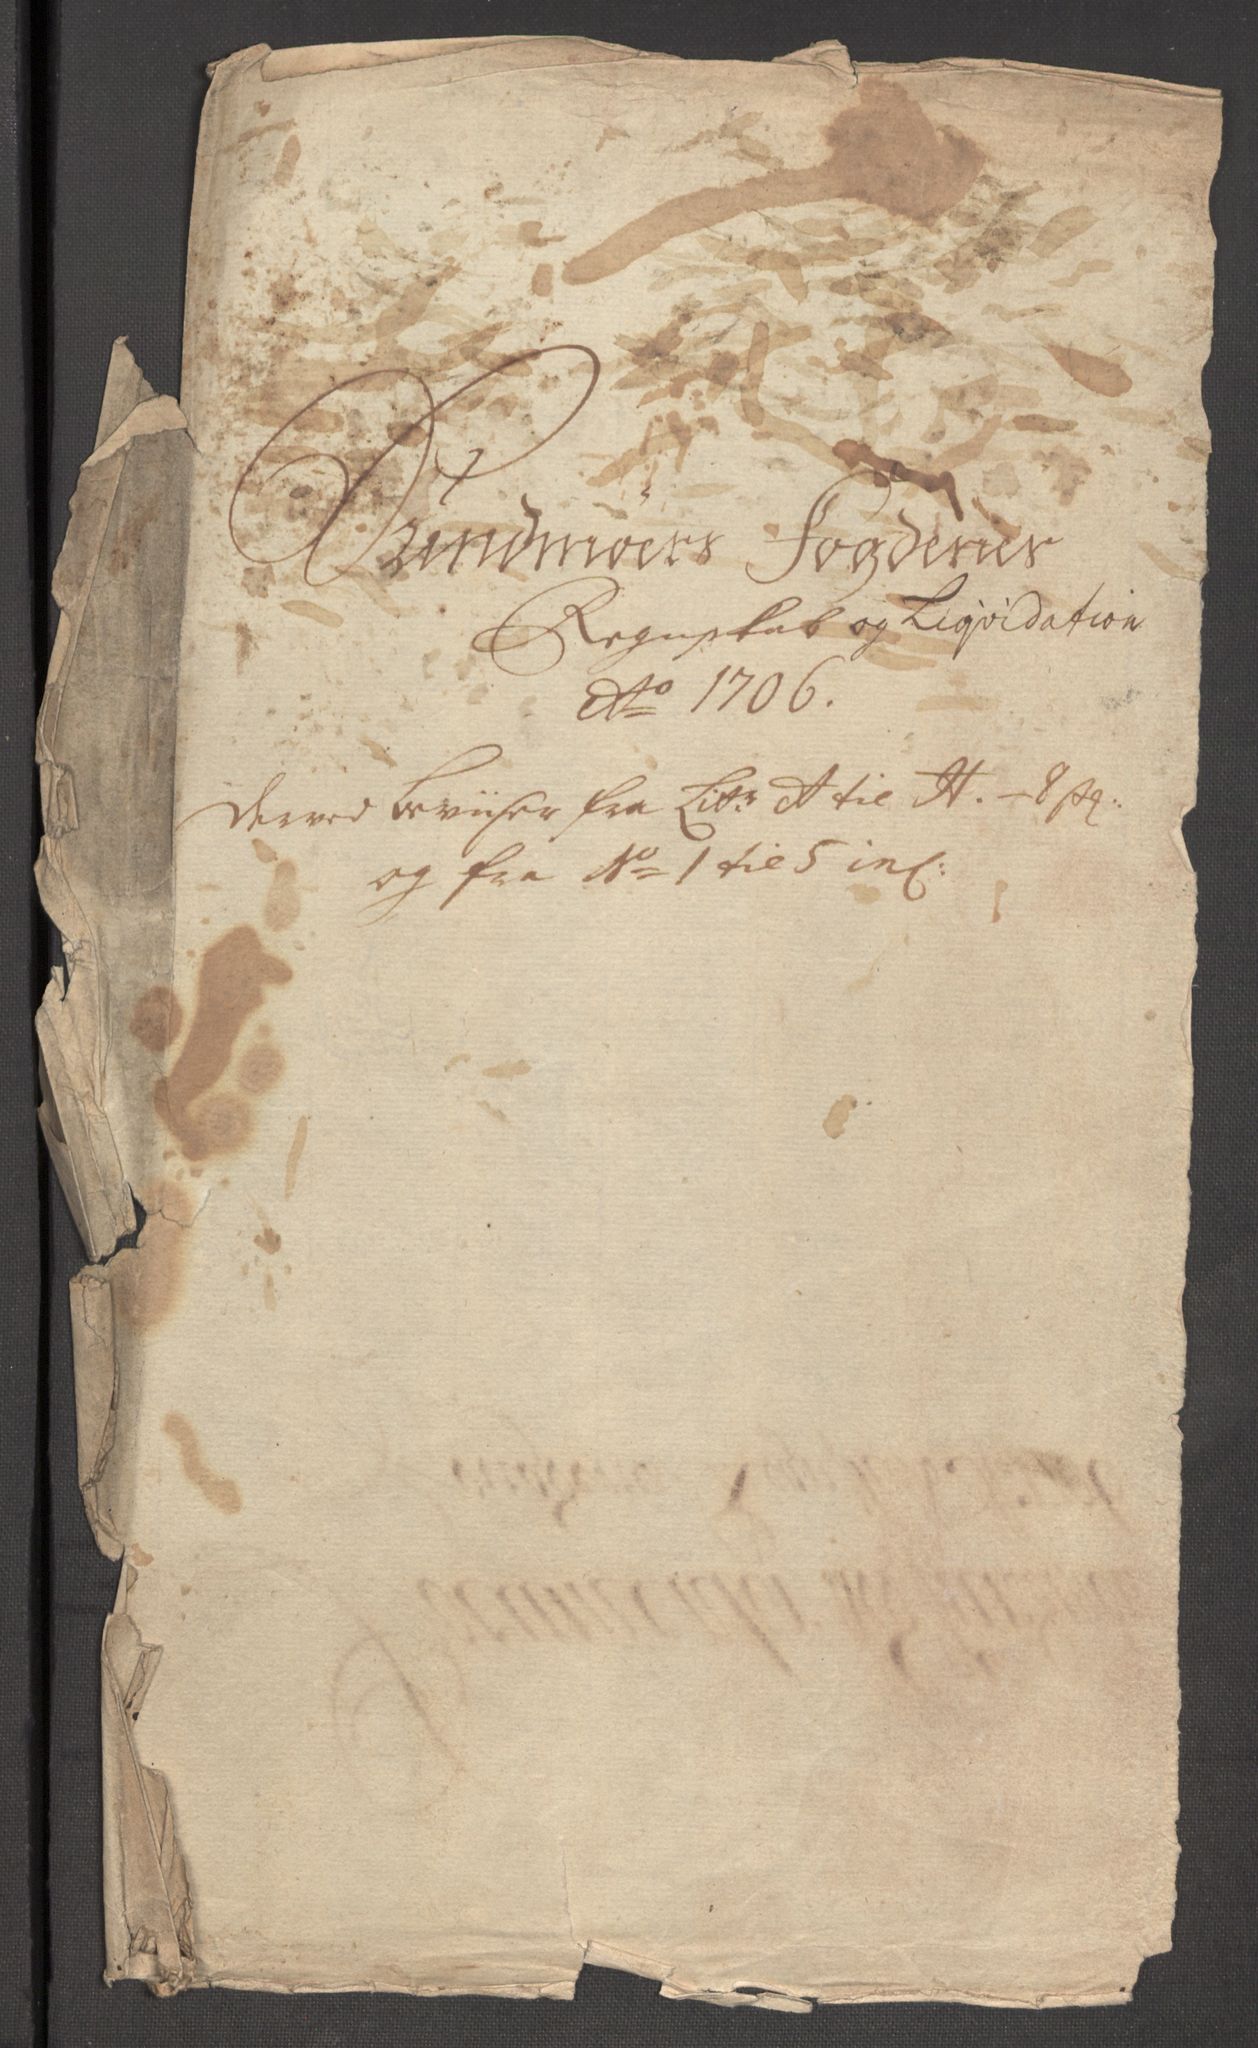 Sundmöers Fogderies
Regnskab og Liqvidation
Ao 1706.
Derved beviiser fra Litr A til H. – 8 st:
og fra No 1 til 5 incl: